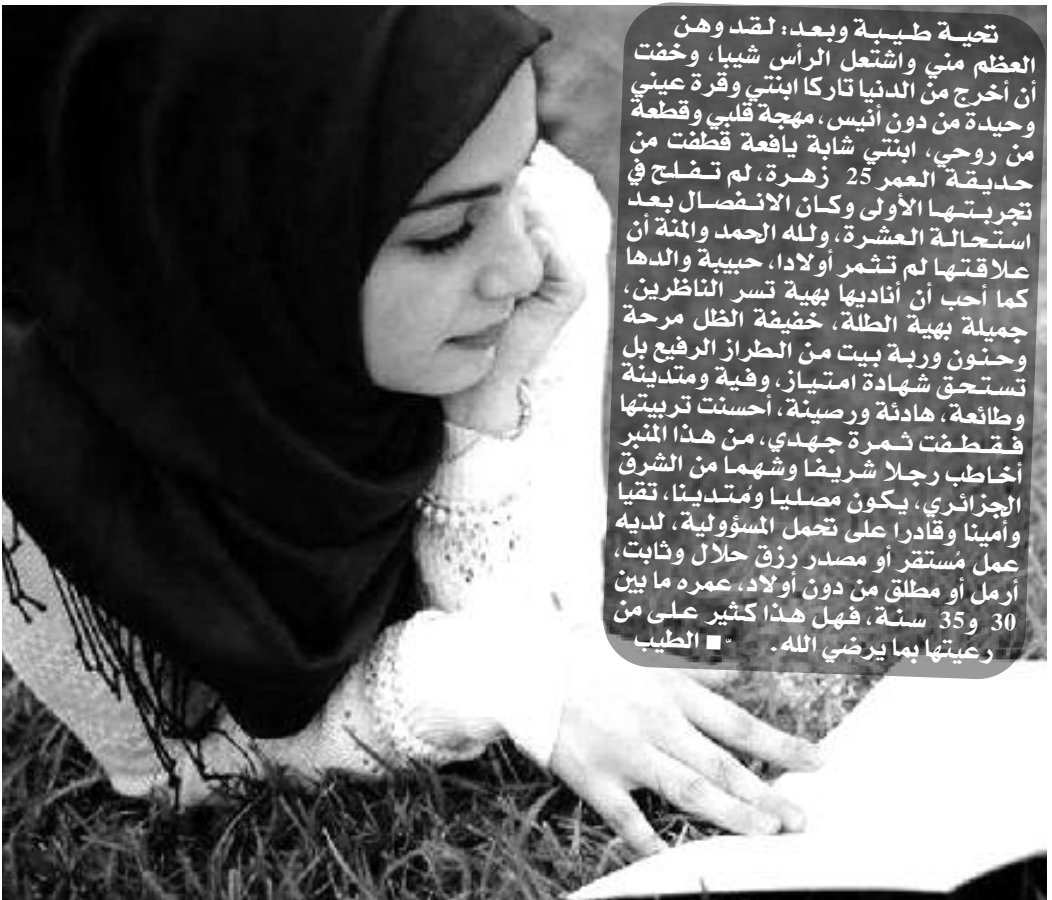 تحية طيبة وبعد: لقد وهن
العظم مني واشتعل الرأس شيبا، وخفت
أن أخرج من الدنيا تاركا ابنتي وقرة عيني
وحيدة من دون أنيس، مهجة قلبي وقطعة
من روحي، ابنتي شابة يافعة قطفت من
حديقة العمر 25 زهرة، لم تفلح في
تجربتها الأولى وكان الانفصال بعد
استحالة العشرة، ولله الحمد والمنة أن
علاقتها لم تثمر أولادا، حبيبة والدها
كما أحب أن أناديها بهية تسر الناظرين،
جميلة بهية الطلة، خفيفة الظل مرحة
وحنون وربة بيت من الطراز الرفيع بل
تستحق شهادة امتياز، وفية ومتدينة
وطائعة، هادئة ورصينة، أحسنت تربيتها
فقطفت ثمرة جهدي، من هذا المنبر
أخاطب رجلا شريفا وشهما من الشرق
الجزائري، يكون مصليا ومُتدينا، تقيا
وأمينا وقادرا على تحمل المسؤولية، لديه
عمل مُستقر أو مصدر رزق حلال وثابت،
أرمل أو مطلق من دون أولاد، عمره ما بين
30 و35 سنة، فهل هذا كثير على من
رعيتها بما يرضي الله. ■ الطيب